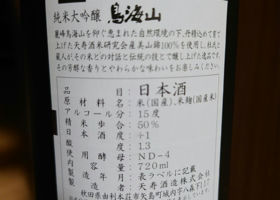 純米大吟醸 鳥海山
麗峰鳥海山を仰ぐ恵まれた自然環境の下、丹精込めて育て
上げた天寿酒米研究会産美山錦100%を使用し、杜氏と
蔵人が、その米との対話と伝統の技とで醸し上げた逸品です。
その芳ある香りとやわらかな味わいをお楽しみください。
品目 日本酒
原材料名 米(国産)、米麹(国産米)
アルコール分 15度
精米歩合 50%
日本酒度 +1
酸度 1.3
使用酵母 ND-4
内容量 720ml
製造年月 長ラベルに記載
製造者 天寿酒造株式会社
秋田県由利本荘市矢島町城内字八森下117